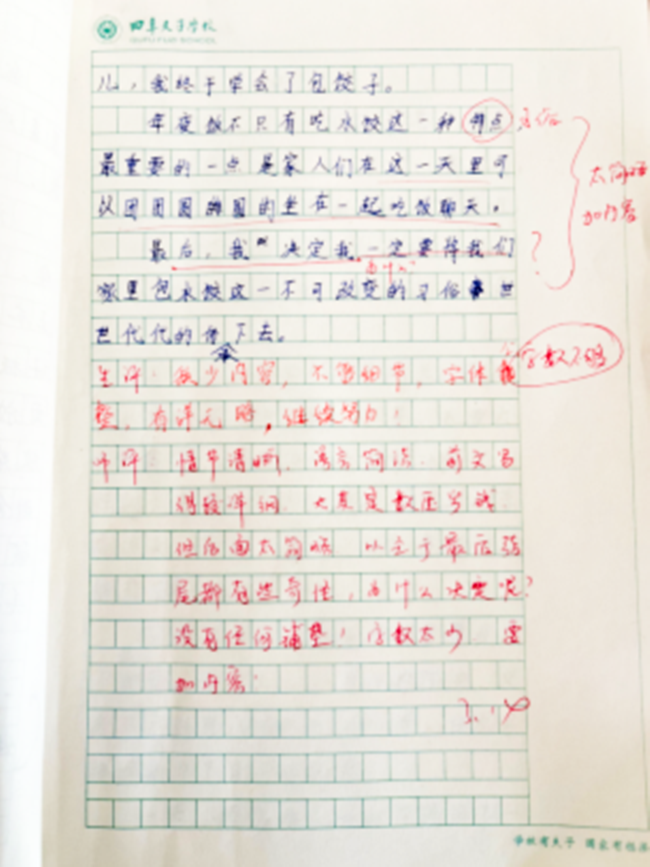 儿，我终于学会了包饺子。
年夜饭不只有吃水饺这一种
最重要的一点是家人们在这一天里可
以团团圆圆的坐在一起吃饭聊天。
最后，我决定我一定要将我们
家里包水饺这一不可改变的习俗世
世代代的传下去。
太简略
加内容
?
字数不够
缺少内容，不当细节，字体
整，有详无略，继续努力！
情节清晰 语言简洁 前文写
得较详细
但后面太简略 以至于最后结
尾都有些奇怪，为什么决定呢？
没有任何铺垫！字数太少 要
加内容